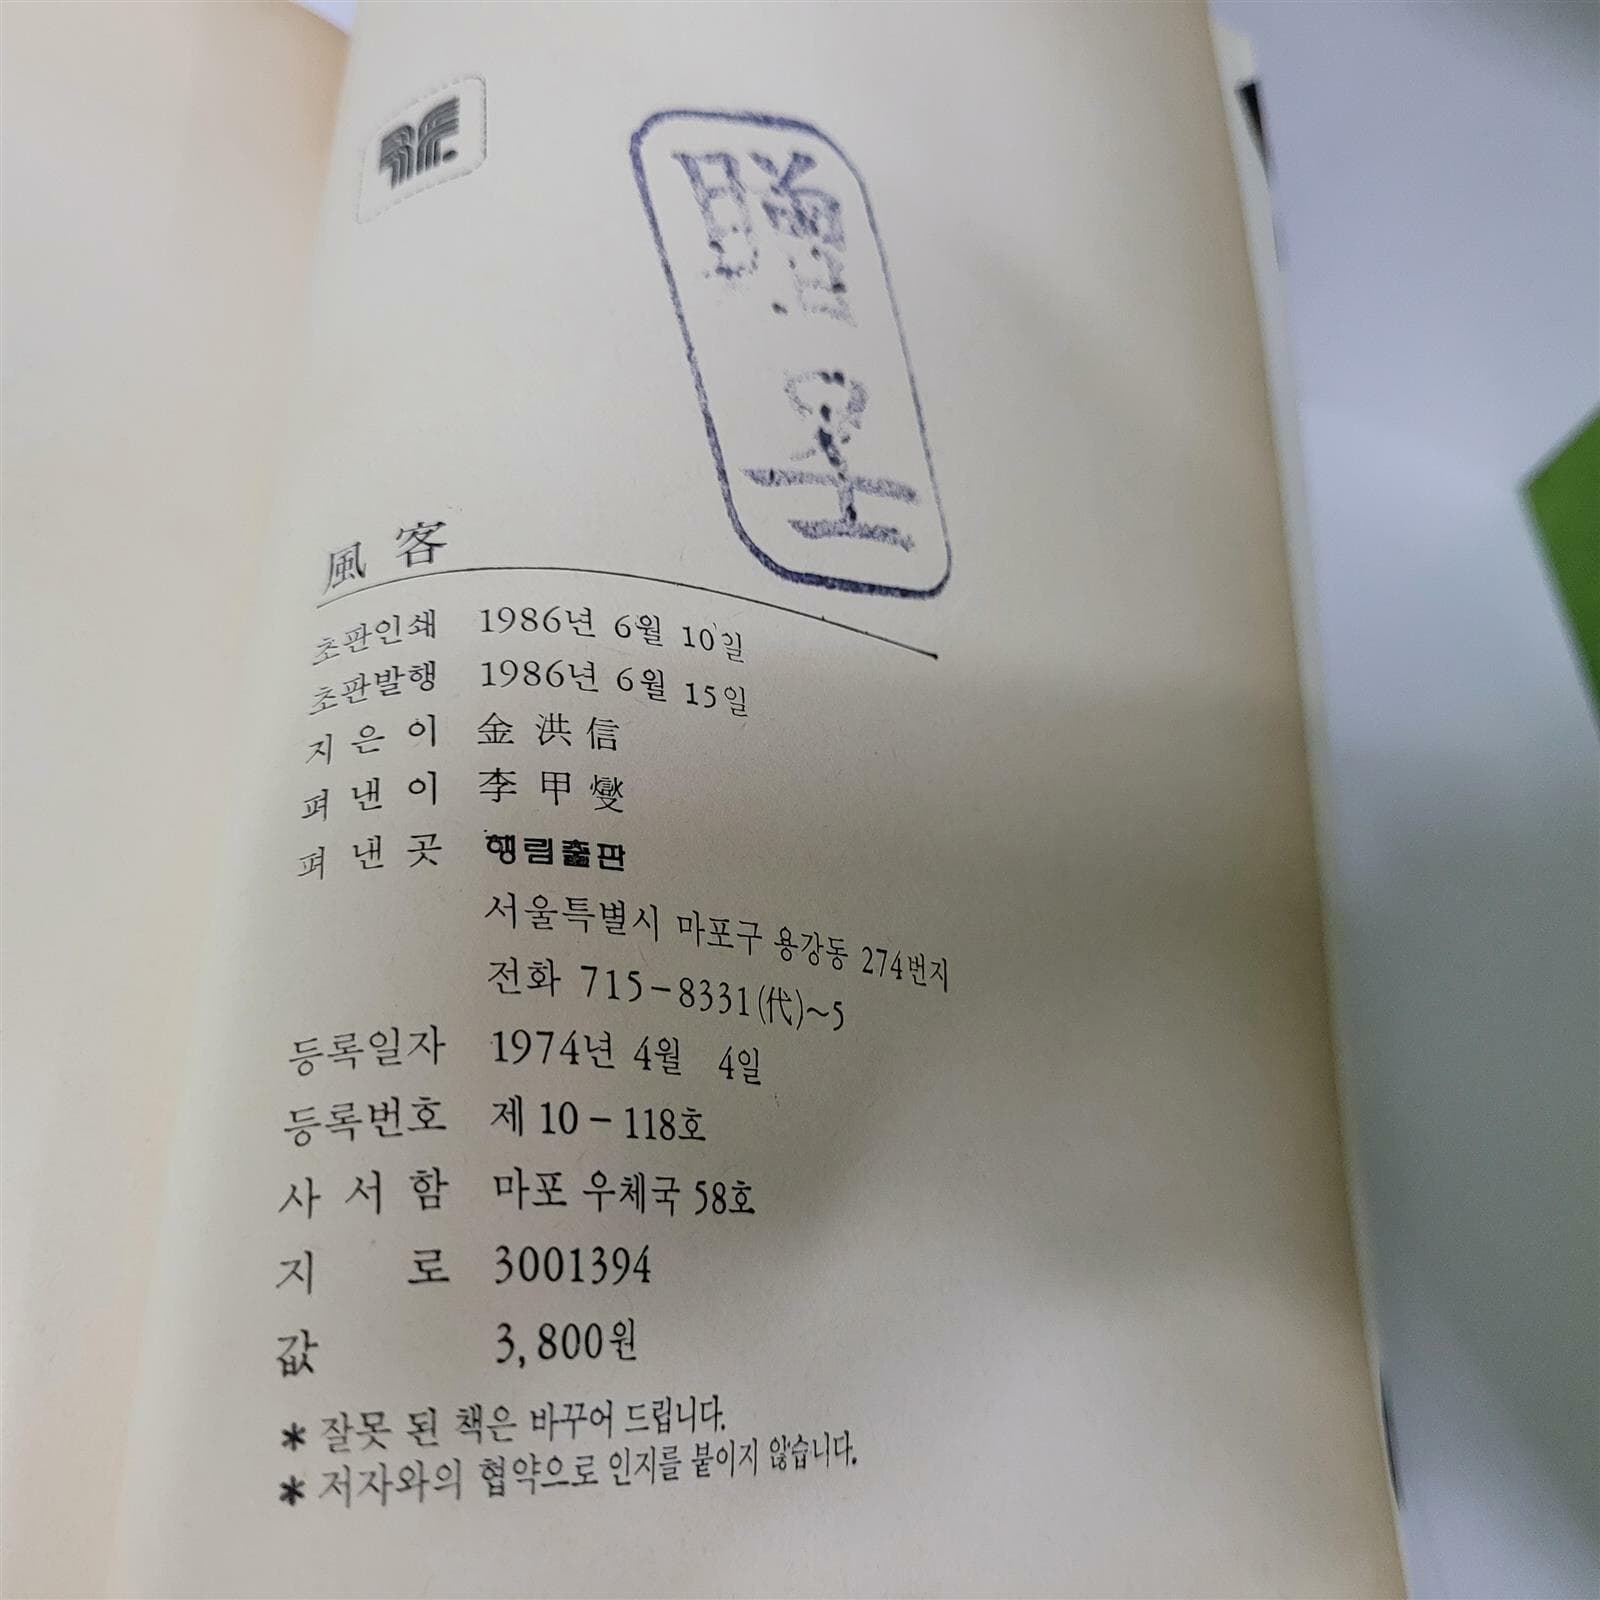 贈呈
風客
초판인쇄 1986년 6월 10일
초판발행 1986년 6월 15일
지 은 이 金 洪 信
펴 낸 이 李 甲 燮
펴 낸 곳 행림출판
서울특별시 마포구 용강동 274번지
전화 715-8331(代)~5
등록일자 1974년 4월 4일
등록번호 제 10-118호
사 서 함 마포 우체국 58호
지 로 3001394
값 3,800원
* 잘못 된 책은 바꾸어 드립니다.
* 저자와의 협약으로 인지를 붙이지 않습니다.